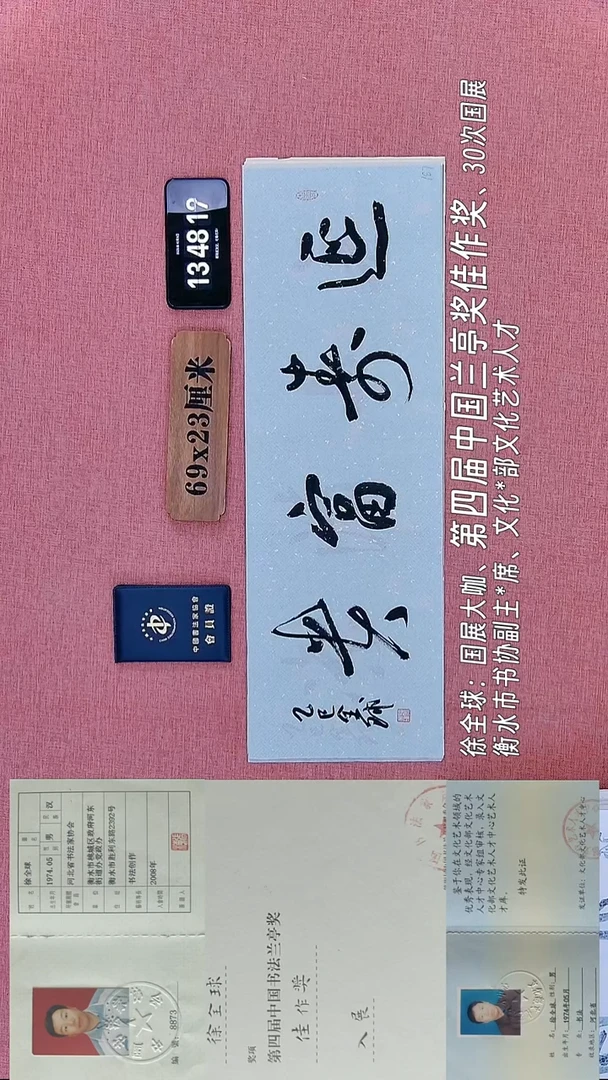 13 48 19
69x23厘米
中國書法家協會
會員證
延寿富贵
乙巳全球
徐全球：国展大咖、第四届中国兰亭奖佳作奖、30次国展
衡水市书协副主*席、文化*部文化艺术人才
徐全球
1974.05
男
汉
河北省书法家协会
衡水市桃城区政府河东
街道办党政办
衡水市胜利东路2392号
书法创作
2008年
8873
徐全球
奖项
第四届中国书法兰亭奖
佳作奖
入展
鉴于你在文化艺术领域的
优秀表现，经文化部文化艺术
人才中心专家组审核，录入文
化部文化艺术人才中心艺术人
才库。
特发此证
发证单位：文化部文化艺术人才中心
姓名：徐全球 性别：男
出生年月：1974年05月
专业：书法